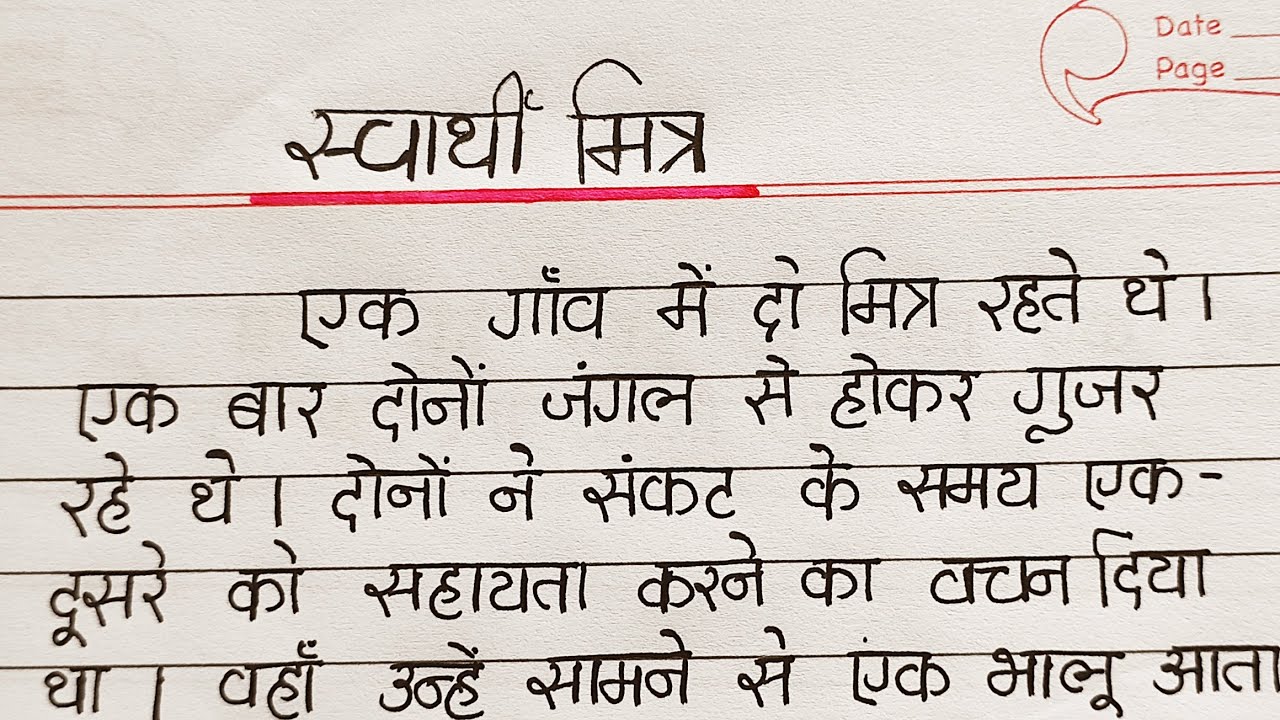 Date
Page
स्वार्थी मित्र
एक गाँव में दो मित्र रहते थे।
एक बार दोनों जंगल से होकर गूजर
रहे थे। दोनों ने संकट के समय एक-
दूसरे को सहायता करने का वचन दिया
था। वहाँ उन्हें सामने से एंक भालू आता